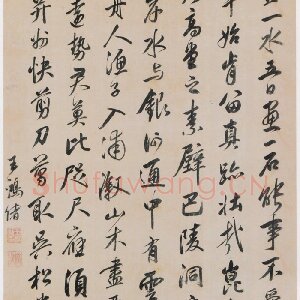 一水五日畫一石能事不受
宰始肯留真跡壯哉崑
高堂之素壁巴陵洞
岸水與銀河通中有雲
舟人漁子入浦漵山木盡
遠勢古莫比咫尺應須
并州快剪刀剪取吳松
王鴻緒
Shufawang.CN